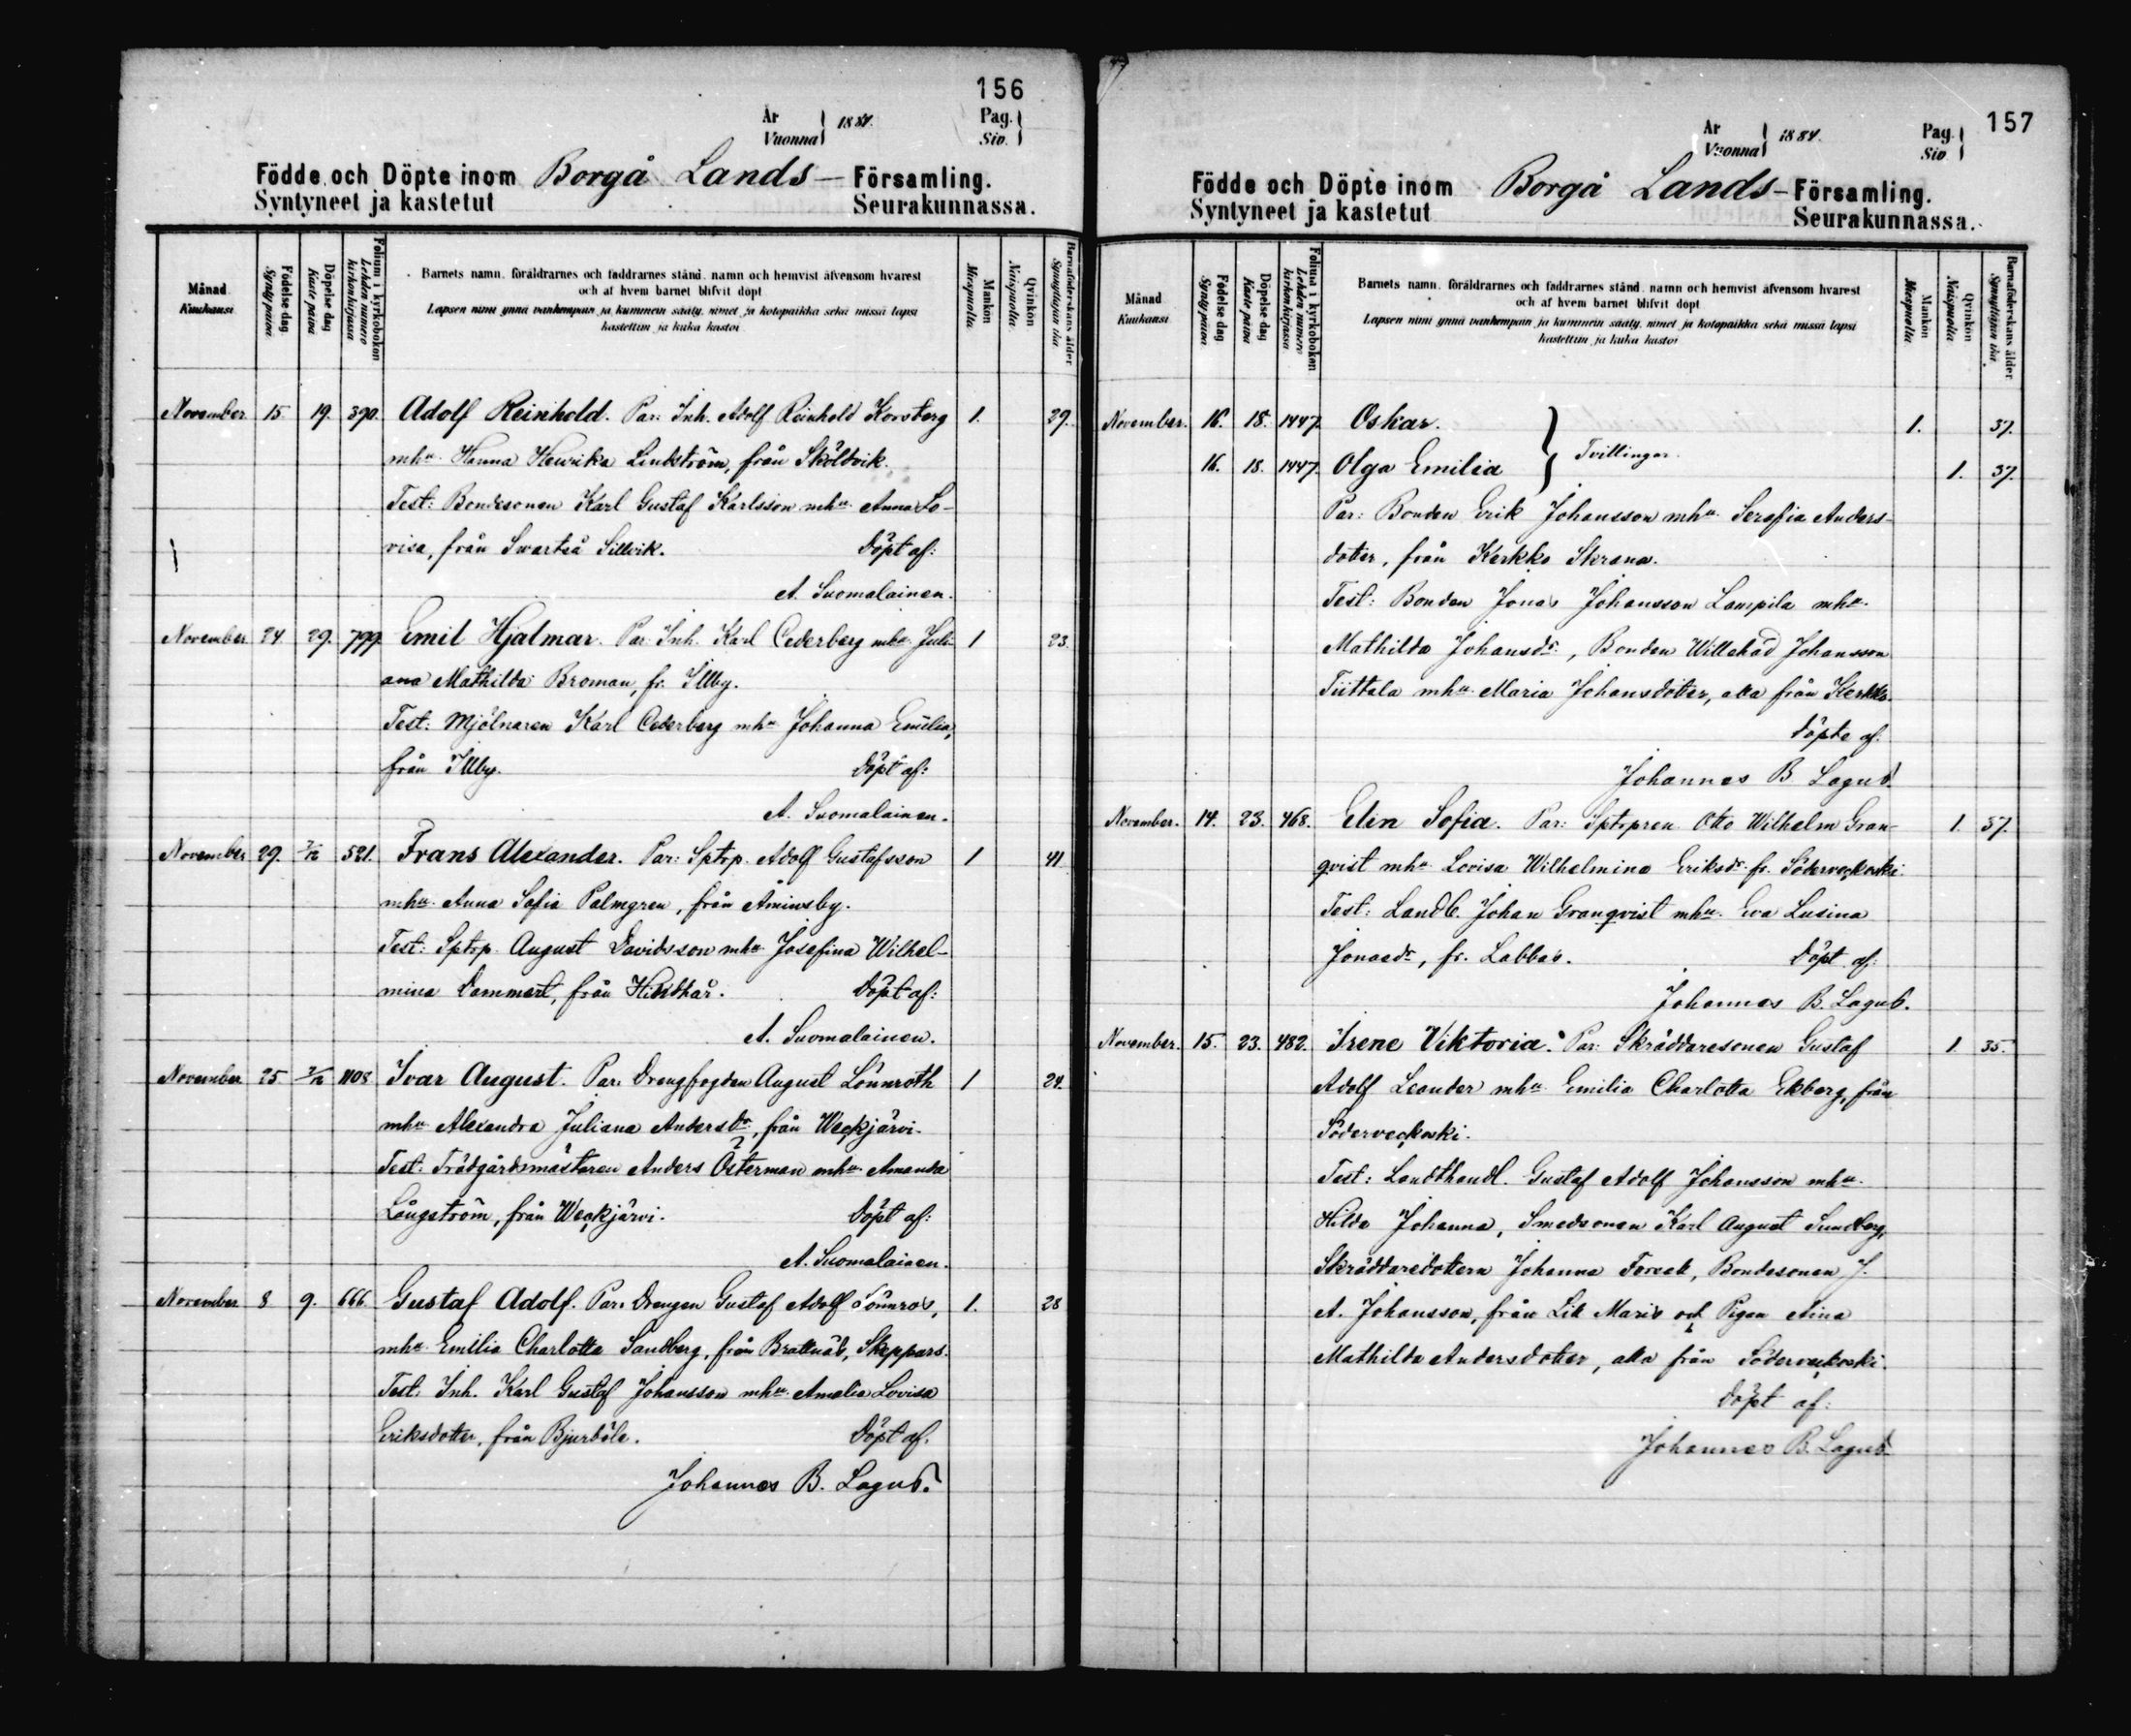 156
År
Vuonna
1884.
Pag.
Siv.
Födde och Döpte inom Borgå Lands- Församling.
Syntyneet ja kastetut Seurakunnassa.
Månad
Kuukausi
Födelse dag
Synty päivä
Döpelse dag
Kaste päivä
Folium i kyrkoboken
Lehden numero kirkonkirjassa
Barnets namn, föräldrarnes och faddrarnes stånd, namn och hemvist äfvensom hvarest
och af hvem barnet blifvit döpt
Lapsen nimi ynnä vanhempain ja kummein sääty, nimet ja kotopaikka sekä missä lapsi
kastettiin ja kuka kastoi
Mankön
Miespuolta
Qvinkön
Naispuolta
Barnaföderskans ålder
Synnyttäjän ikä
November 15 19. 390. Adolf Reinhold. Par: Inh. Adolf Reinhold Korsberg 1. 29.
mhu Hanna Henrika Lindström, från Sköldvik.
Test: Bondesonen Karl Gustaf Karlsson mhu Anna Lo-
visa, från Svartså Sillvik. Döpt af:
A. Suomalainen.
November 24 29. 799. Emil Hjalmar. Par: Inh. Karl Cederberg mhu Juli- 1 23.
ana Mathilda Broman, fr. Illby.
Test: Mjölnaren Karl Cederberg mhu Johanna Emilia,
från Illby. Döpt af:
A. Suomalainen.
November 29. 7/12 521. Frans Alexander. Par: Sptrp. Adolf Gustafsson 1 41
mhu Anna Sofia Palmgren, från Åminsby.
Test: Sptrp. August Davidsson mhu Josefina Wilhel-
mina Dammert, från Hindhår. Döpt af:
A. Suomalainen.
November 25 7/12 1108 Ivar August. Par: Drengfogden August Lönnroth 1 24.
mhu Alexandra Juliana Andersdr, från Weckjärvi.
Test: Trädgårdsmästaren Anders Österman mhu Amanda
Långström, från Weckjärvi. Döpt af:
A. Suomalainen.
November 8 9. 666. Gustaf Adolf. Par: Drengen Gustaf Adolf Lönnros, 1. 28
mhu Emilia Charlotta Sandberg, från Brattnäs, Skeppars.
Test: Inh. Karl Gustaf Johansson mhu Amalia Lovisa
Eriksdotter, från Bjurböle. Döpt af.
Johannes B. Lagus.
157
År
Vuonna
1884.
Pag.
Siv
Födde och Döpte inom Borgå Lands- Församling.
Syntyneet ja kastetut Seurakunnassa.
Månad
Kuukausi
Födelse dag
Synty päivä
Döpelse dag
Kaste päivä
Folium i kyrkoboken
Lehden numero kirkonkirjassa
Barnets namn, föräldrarnes och faddrarnes stånd, namn och hemvist äfvensom hvarest
och af hvem barnet blifvit döpt
Lapsen nimi ynnä vanhempain ja kummein sääty, nimet ja kotopaikka sekä missä lapsi
kastettiin ja kuka kastoi
Mankön
Miespuolta
Qvinkön
Naispuolta
Barnaföderskans ålder
Synnyttäjän ikä
November. 16. 18. 1447. Oskar. 1. 37.
16. 18. 1447. Olga Emilia Tvillingar. 1. 37.
Par: Bonden Erik Johansson mhu Serafia Anders-
dotter, från Kerkko Skrana.
Test: Bonden Jonas Johansson Lampila mhu
Mathilda Johansdr, Bonden Willehad Johansson
Tiittala mhu Maria Johansdotter, alla från Kerkko.
Döpte af:
Johannes B. Lagus.
November. 14. 23. 468. Elin Sofia. Par: Sptrpren Otto Wilhelm Gran- 1. 37.
qvist mhu Lovisa Wilhelmina Eriksdr fr. Söderveckoski.
Test: Landb. Johan Granqvist mhu Eva Lusina
Jonasdr, fr. Labbas. Döpt af:
Johannes B. Lagus.
November. 15. 23. 482. Irene Viktoria. Par: Skräddaresonen Gustaf 1. 35.
Adolf Leander mhu Emilia Charlotta Ekberg, från
Söderveckoski.
Test: Landthandl. Gustaf Adolf Johansson mhu
Hilda Johanna, Smedsonen Karl August Sundberg,
Skräddaredottern Johanna, Bondesonen J.
A. Johansson, från Lill Maris och Pigan Aina
Mathilda Andersdotter, alla från Söderveckoski.
Döpt af:
Johannes B. Lagus